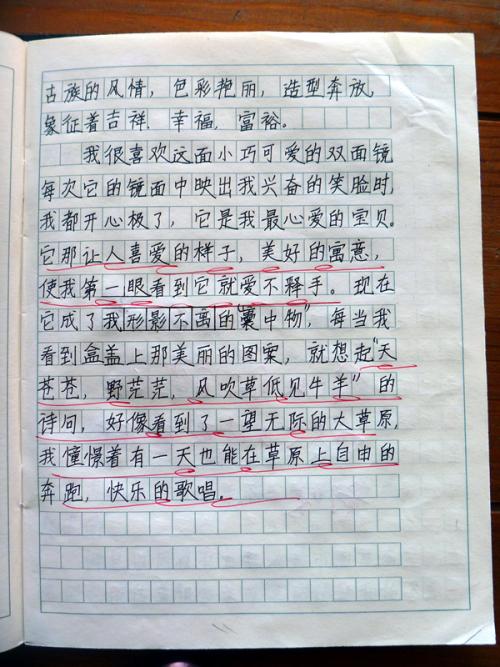 古族的风情，色彩艳丽，造型奔放，
象征着吉祥．幸福，富裕。
我很喜欢这面小巧可爱的双面镜
每次它的镜面中映出我兴奋的笑脸时，
我都开心极了，它是我最心爱的宝贝。
它那让人喜爱的样子，美好的寓意，
使我第一眼看到它就爱不释手。现在
它成了我形影不离的“囊中物”，每当我
看到盒盖上那美丽的图案，就想起“天
苍苍，野茫茫，风吹草低见牛羊”的
诗句，好像看到了一望无际的大草原，
我憧憬着有一天也能在草原上自由的
奔跑，快乐的歌唱。